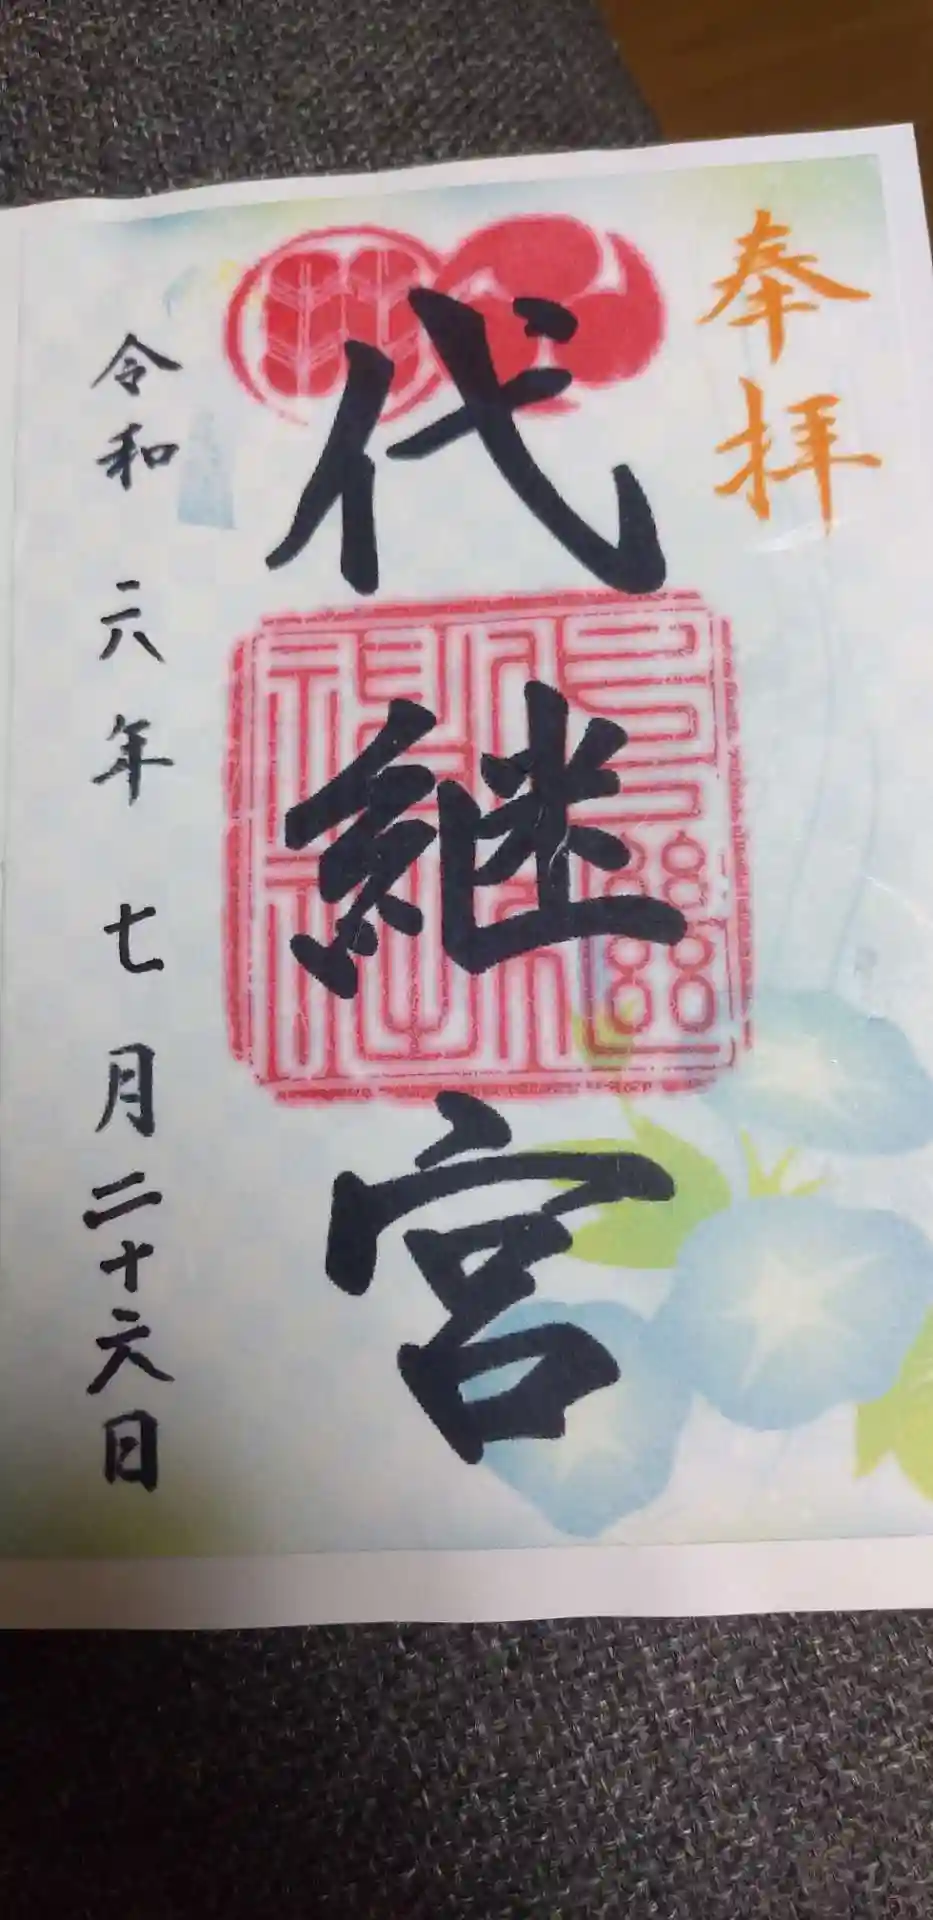 奉拝
代継宮
令和六年七月二十六日